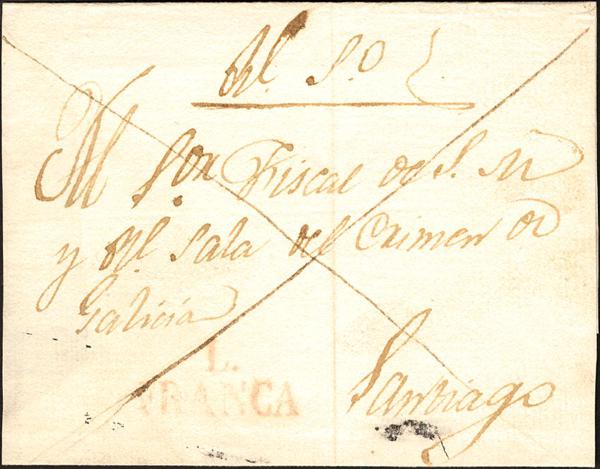 Rl. S.o
Al S.or Fiscal de S. M
y Rl. Sala del Crimen de
Galicia
L.
FRANCA
Santiago